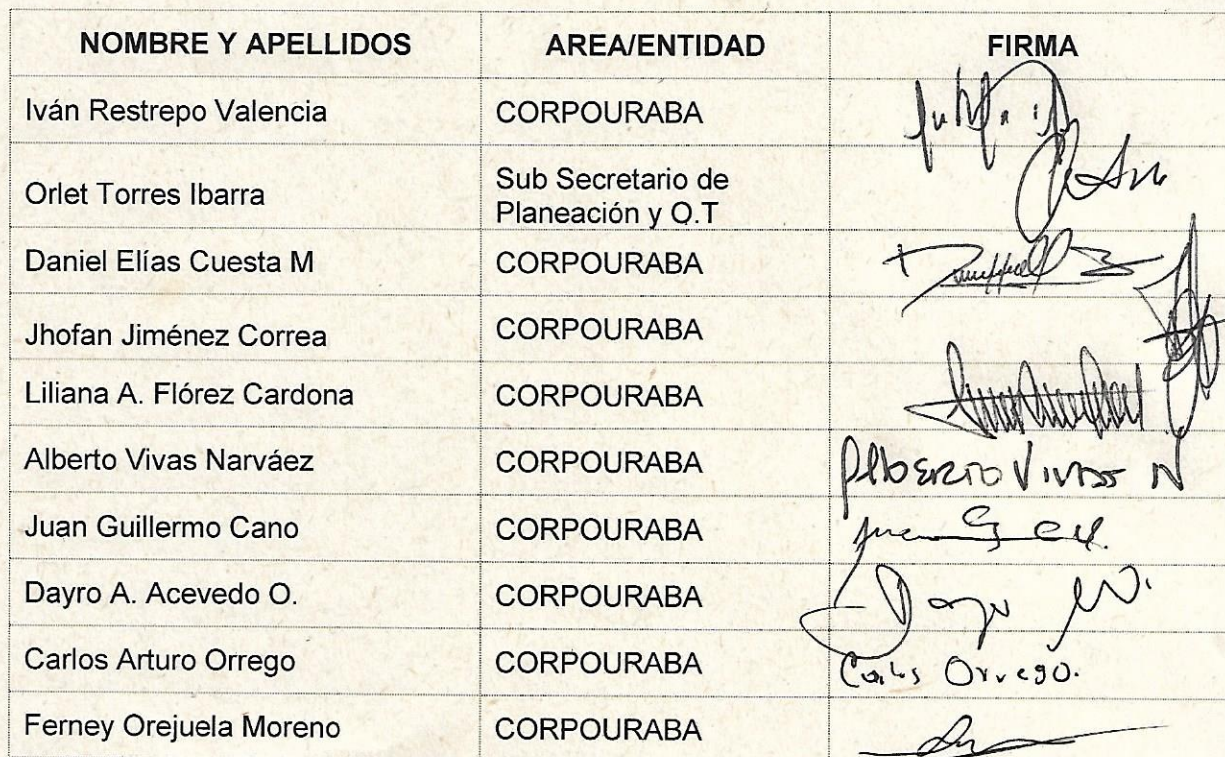 NOMBRE Y APELLIDOS AREA/ENTIDAD FIRMA
Iván Restrepo Valencia CORPOURABA
Orlet Torres Ibarra Sub Secretario de
Planeación y O.T
Daniel Elías Cuesta M CORPOURABA
Jhofan Jiménez Correa CORPOURABA
Liliana A. Flórez Cardona CORPOURABA
Alberto Vivas Narváez CORPOURABA Alberto Vivas N
Juan Guillermo Cano CORPOURABA
Dayro A. Acevedo O. CORPOURABA
Carlos Arturo Orrego CORPOURABA Carlos Orrego.
Ferney Orejuela Moreno CORPOURABA